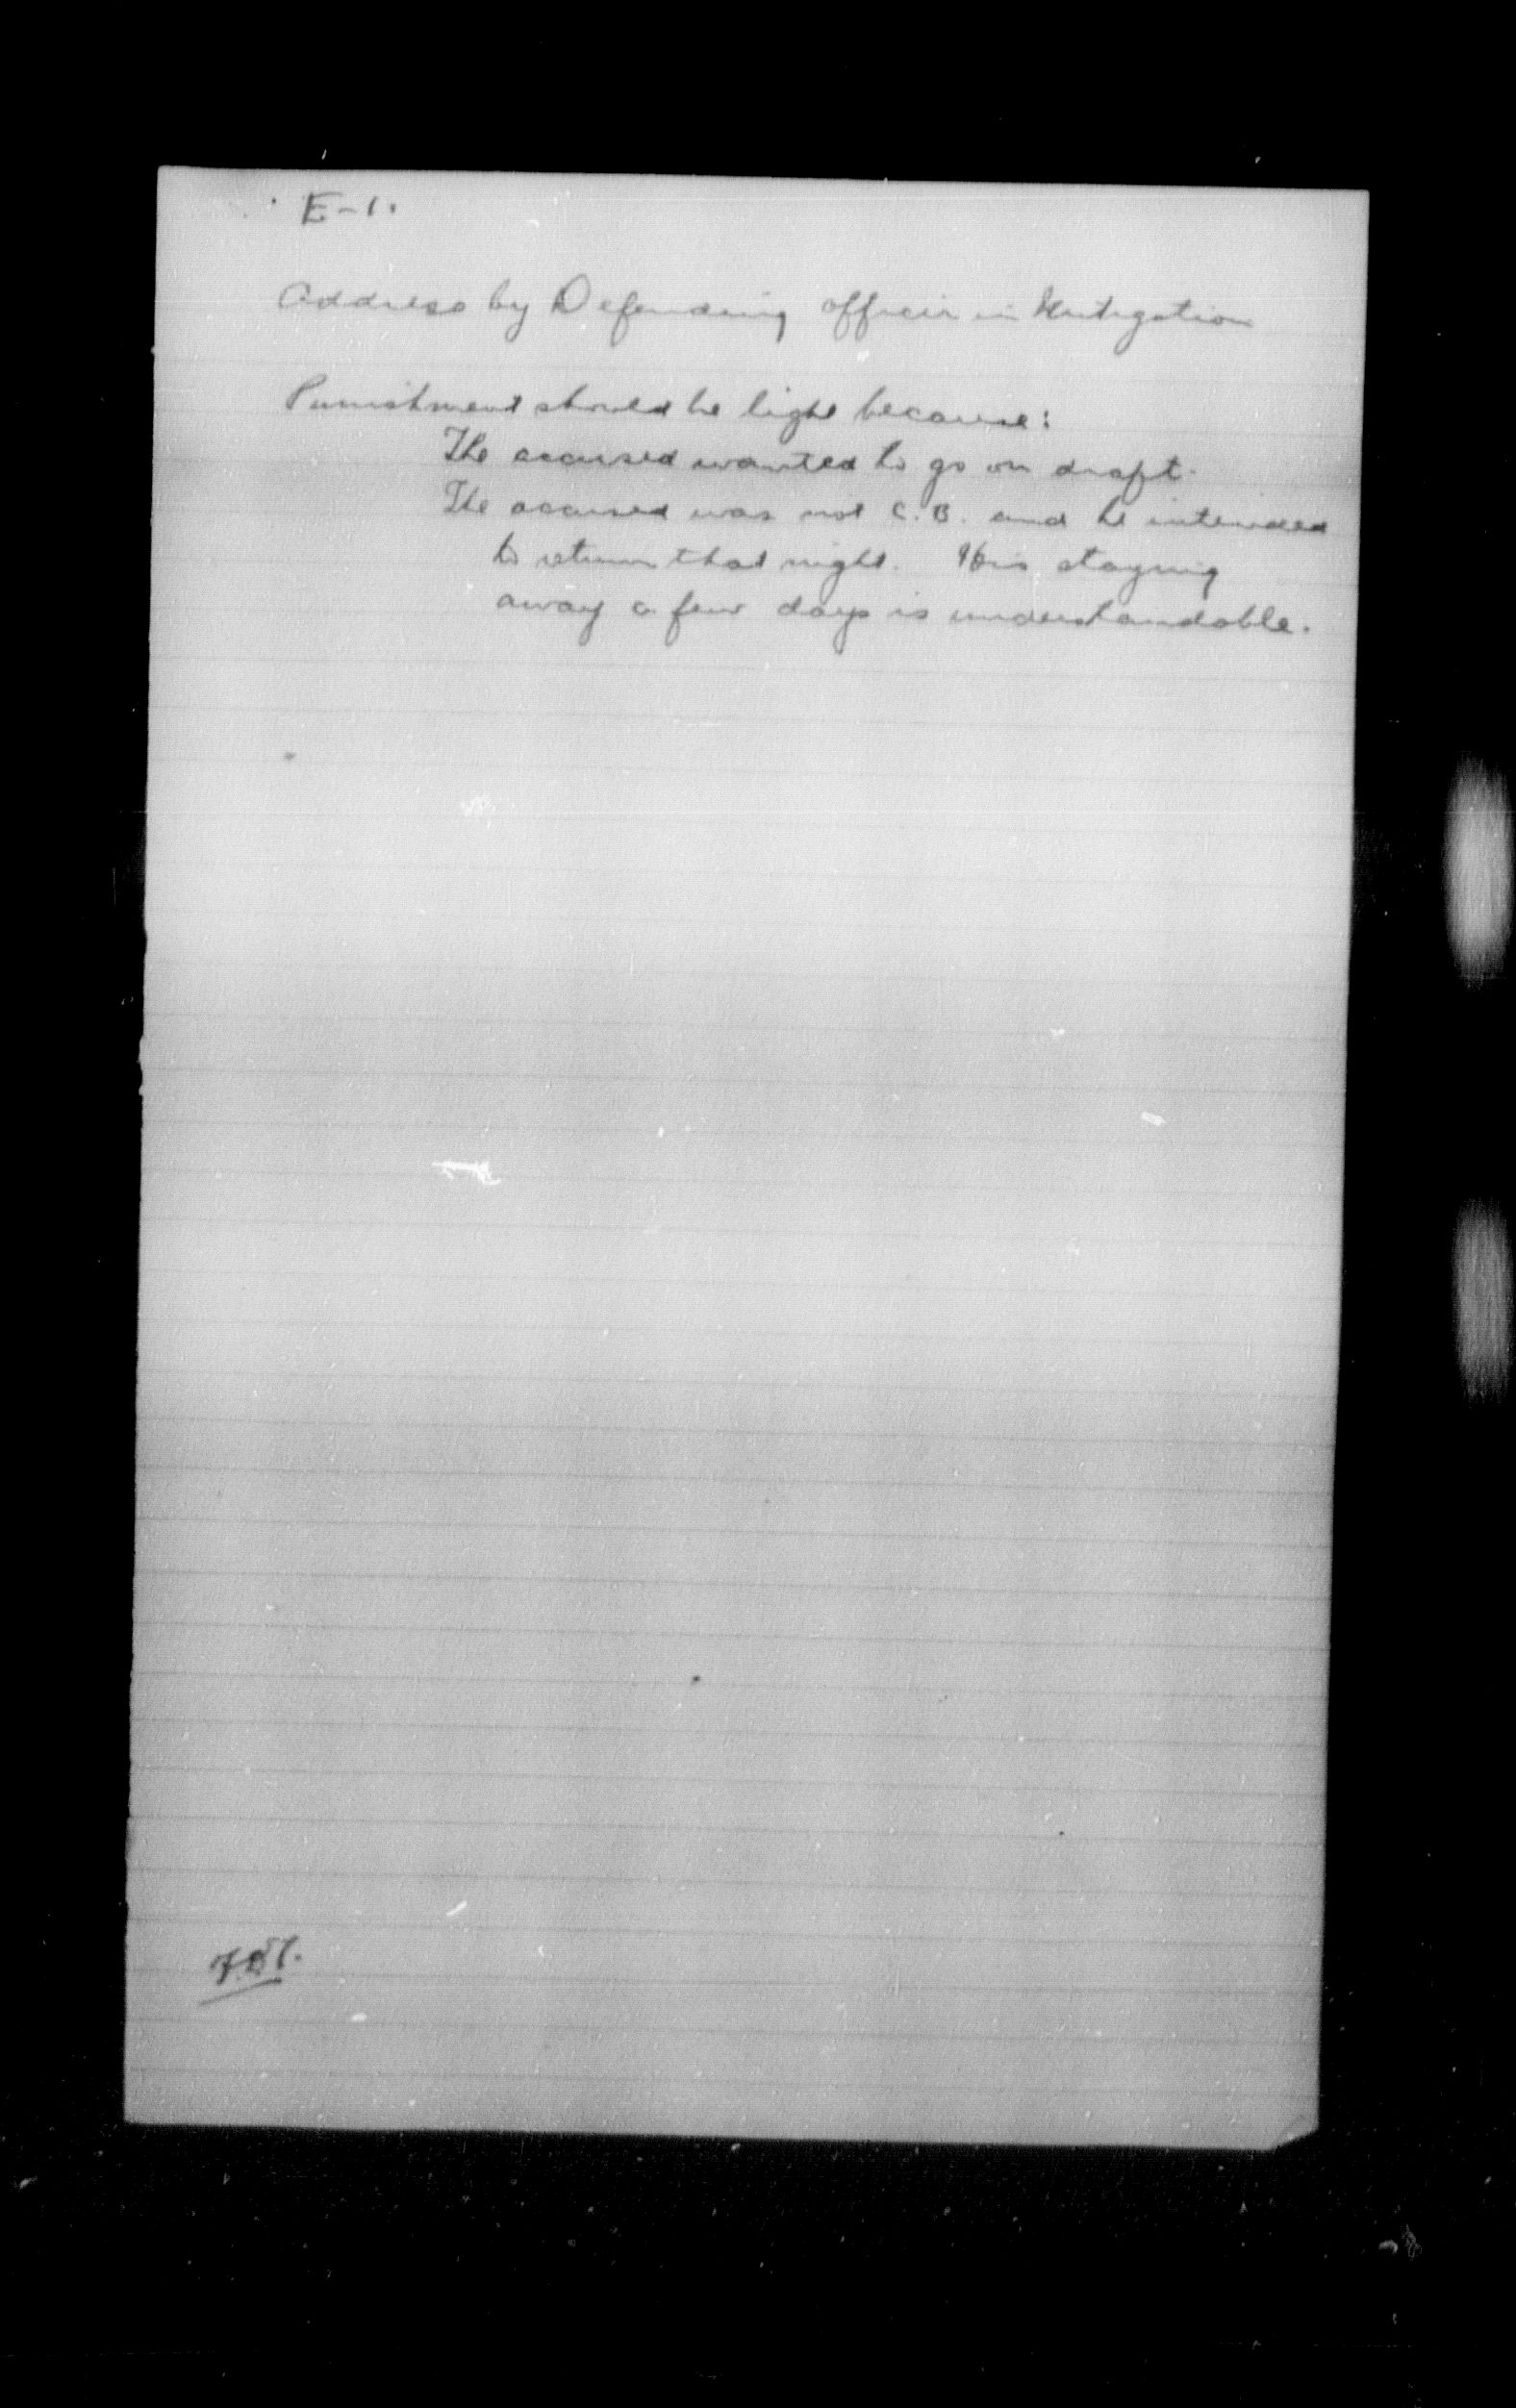 E-1.
Address by Defending officer in Mitigation
Punishment should be light because:
The accused wanted to go on draft.
The accused was not C.B. and he intended
to return that night. His staying
away a few days is understandable.